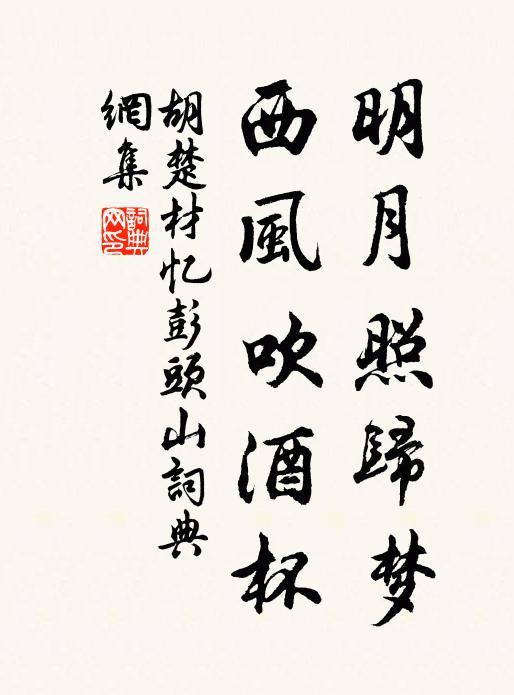 明月照歸梦
西風吹酒杯
胡楚材忆彭頭山詞典
網集
詞典
网印